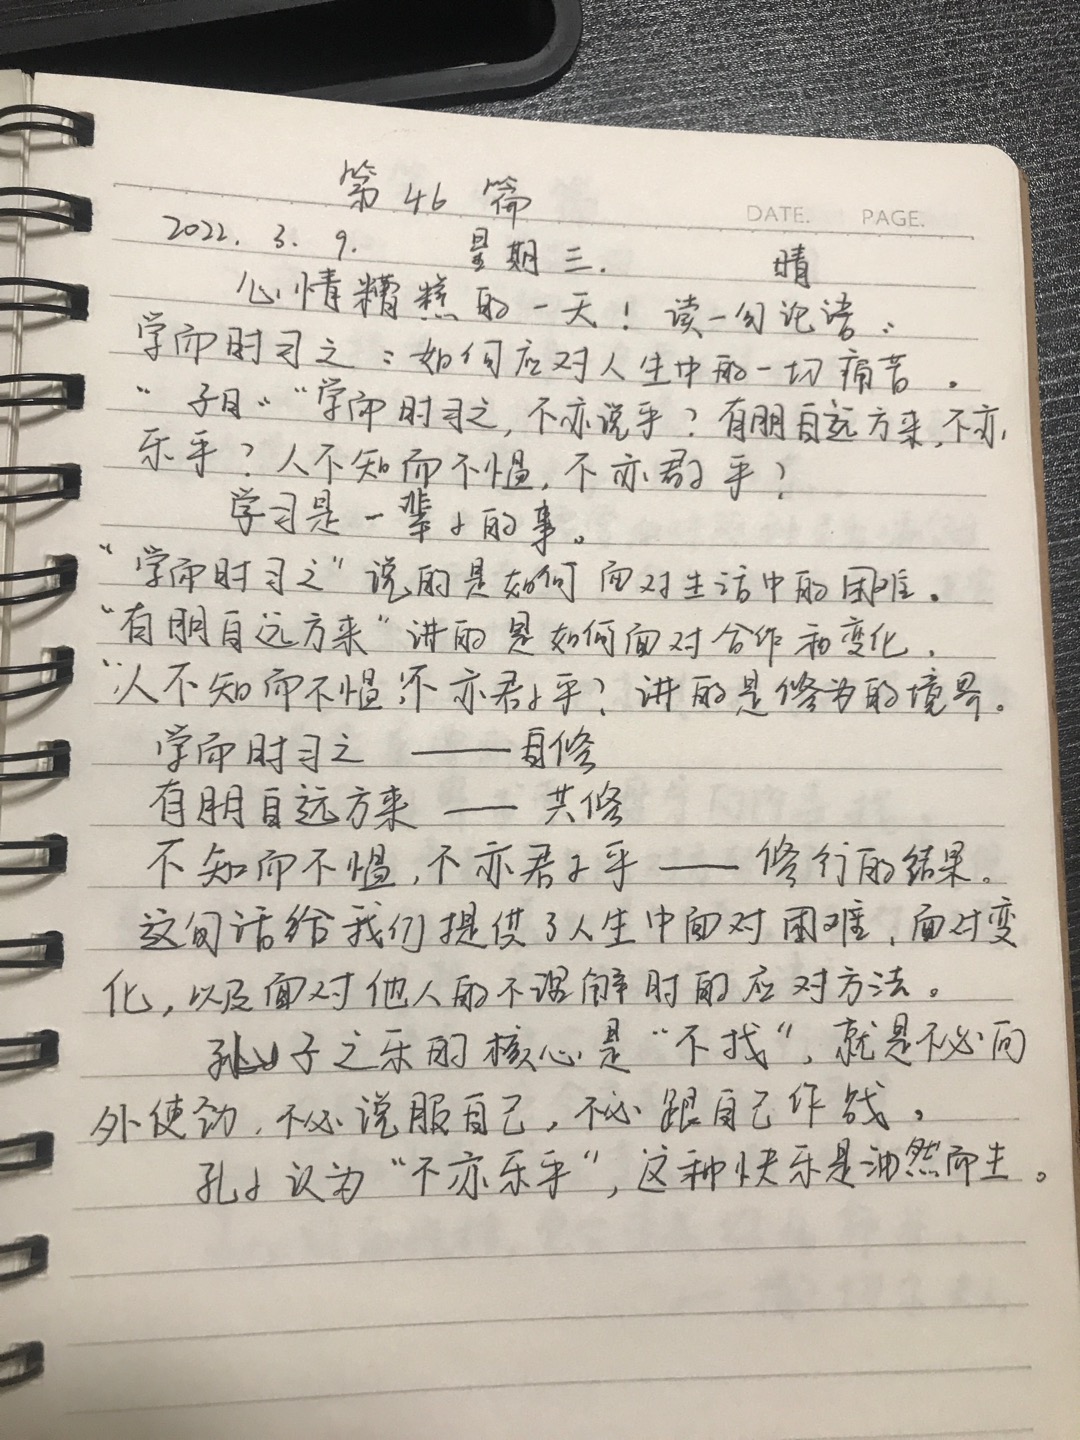 第 46 篇
DATE. PAGE.
2022. 3. 9. 星期三. 晴
心情糟糕的一天! 读一句论语:
学而时习之:如何应对人生中的一切痛苦。
"子曰:"学而时习之,不亦说乎?有朋自远方来,不亦
乐乎?人不知而不愠,不亦君子乎?
学习是一辈子的事。
"学而时习之"说的是如何面对生活中的困难。
"有朋自远方来"讲的是如何面对合作和变化,
"人不知而不愠,不亦君子乎?讲的是修为的境界。
学而时习之 —— 自修
有朋自远方来 —— 共修
不知而不愠,不亦君子乎 —— 修行的结果。
这句话给我们提供了人生中面对困难,面对变
化,以及面对他人的不理解时的应对方法。
孔子之乐的核心是"不找",就是不必向
外使劲,不必说服自己,不必跟自己作战。
孔子认为"不亦乐乎",这种快乐是油然而生。